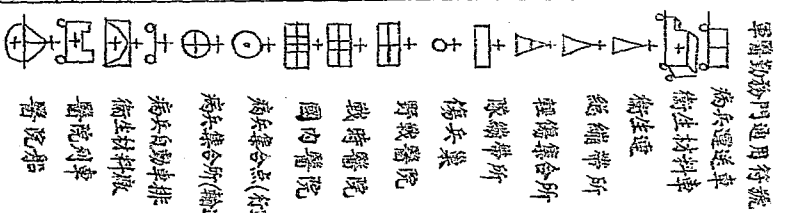 軍醫勤務門通用符號
病兵運送車
衛生材料車
衛生連
繃帶所
輕傷集合所
隊繃帶所
傷兵巢
野戰醫院
戰時醫院
國內醫院
病兵集合点
病兵集合所
病兵自動車排
衛生材料廠
醫院列車
醫院船